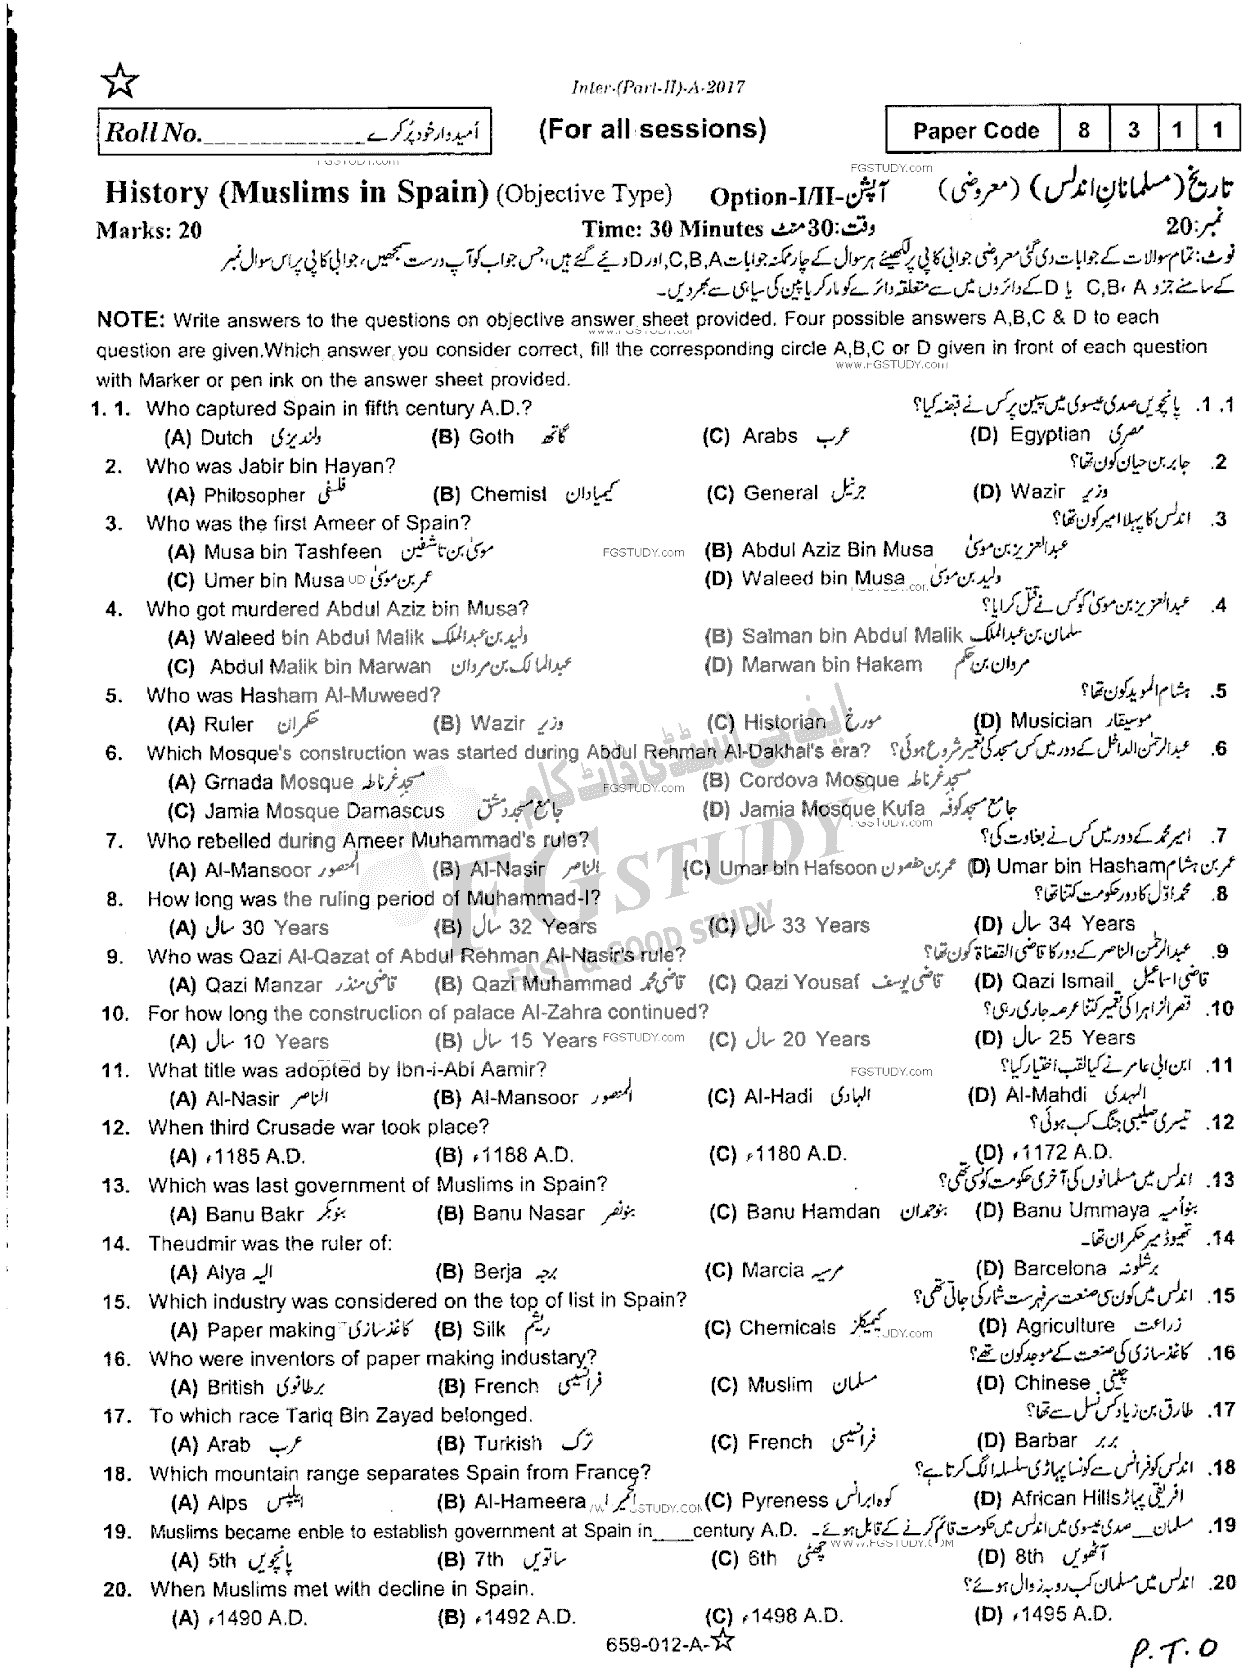 Inter-(Part-II)-A-2017
Roll No. اُمیدوار خود پُر کرے (For all sessions) Paper Code 8 3 1 1
FGSTUDY.com
History (Muslims in Spain) (Objective Type) Option-I/II-آپشن تاریخ (مسلمانانِ اندلس) (معروضی)
Marks: 20 Time: 30 Minutes وقت:30 منٹ نمبر:20
نوٹ: تمام سوالات کے جوابات دی گئی معروضی جوابی کاپی پر لکھیئے ہر سوال کے چار ممکنہ جوابات C,B,A اور D دیئے گئے ہیں، جس جواب کو آپ درست سمجھیں، جوابی کاپی پر اس سوال نمبر
کے سامنے جزو C,B، A یا D کے دائروں میں سے متعلقہ دائرے کو مارکر یا پین کی سیاہی سے بھر دیں۔
NOTE: Write answers to the questions on objective answer sheet provided. Four possible answers A,B,C & D to each
question are given.Which answer you consider correct, fill the corresponding circle A,B,C or D given in front of each question
www.FGSTUDY.com
with Marker or pen ink on the answer sheet provided.
1. 1. Who captured Spain in fifth century A.D.? پانچویں صدی عیسوی میں سپین پر کس نے قبضہ کیا؟ .1 .1
(A) Dutch ولندیزی (B) Goth گاتھ (C) Arabs عرب (D) Egyptian مصری
2. Who was Jabir bin Hayan? جابر بن حیان کون تھا؟ .2
(A) Philosopher فلسفی (B) Chemist کیمیادان (C) General جرنیل (D) Wazir وزیر
3. Who was the first Ameer of Spain? اندلس کا پہلا امیر کون تھا؟ .3
(A) Musa bin Tashfeen موسیٰ بن تاشفین FGSTUDY.com (B) Abdul Aziz Bin Musa عبدالعزیز بن موسیٰ
(C) Umer bin Musa عمر بن موسیٰ (D) Waleed bin Musa ولید بن موسیٰ
4. Who got murdered Abdul Aziz bin Musa? عبدالعزیز بن موسیٰ کو کس نے قتل کرایا؟ .4
(A) Waleed bin Abdul Malik ولید بن عبدالملک (B) Salman bin Abdul Malik سلمان بن عبدالملک
(C) Abdul Malik bin Marwan عبدالمالک بن مروان (D) Marwan bin Hakam مروان بن حکم
5. Who was Hasham Al-Muweed? ہشام الموید کون تھا؟ .5
(A) Ruler حکمران (B) Wazir وزیر (C) Historian مورخ (D) Musician موسیقار
6. Which Mosque's construction was started during Abdul Rehman Al-Dakhal's era? عبدالرحمٰن الداخل کے دور میں کس مسجد کی تعمیر شروع ہوئی؟ .6
(A) Grnada Mosque مسجد غرناطہ FGSTUDY.com (B) Cordova Mosque مسجد غرناطہ
(C) Jamia Mosque Damascus جامع مسجد دمشق (D) Jamia Mosque Kufa جامع مسجد کوفہ
FGSTUDY.com
7. Who rebelled during Ameer Muhammad's rule? امیر محمد کے دور میں کس نے بغاوت کی؟ .7
(A) Al-Mansoor المنصور (B) Al-Nasir الناصر (C) Umar bin Hafsoon عمر بن حفصون (D) Umar bin Hasham عمر بن ہشام
8. How long was the ruling period of Muhammad-I? محمد اوّل کا دور حکومت کتنا تھا؟ .8
(A) سال 30 Years (B) سال 32 Years (C) سال 33 Years (D) سال 34 Years
9. Who was Qazi Al-Qazat of Abdul Rehman Al-Nasir's rule? عبدالرحمٰن الناصر کے دور کا قاضی القضاۃ کون تھا؟ .9
(A) Qazi Manzar قاضی منذر (B) Qazi Muhammad قاضی محمد (C) Qazi Yousaf قاضی یوسف (D) Qazi Ismail قاضی اسماعیل
ایف جی اسٹڈی ڈاٹ کام
FG STUDY ®
FAST & GOOD STUDY
10. For how long the construction of palace Al-Zahra continued? قصر الزاہرا کی تعمیر کتنا عرصہ جاری رہی؟ .10
(A) سال 10 Years (B) سال 15 Years FGSTUDY.com (C) سال 20 Years (D) سال 25 Years
11. What title was adopted by Ibn-i-Abi Aamir? FGSTUDY.com ابن ابی عامر نے کیا لقب اختیار کیا؟ .11
(A) Al-Nasir الناصر (B) Al-Mansoor المنصور (C) Al-Hadi الہادی (D) Al-Mahdi المہدی
12. When third Crusade war took place? تیسری صلیبی جنگ کب ہوئی؟ .12
(A) ء1185 A.D. (B) ء1188 A.D. (C) ء1180 A.D. (D) ء1172 A.D.
13. Which was last government of Muslims in Spain? اندلس میں مسلمانوں کی آخری حکومت کونسی تھی؟ .13
(A) Banu Bakr بنو بکر (B) Banu Nasar بنو نصر (C) Banu Hamdan بنو حمدان (D) Banu Ummaya بنو اُمیہ
14. Theudmir was the ruler of: تھیوڈمیر حکمران تھا۔ .14
(A) Alya الیہ (B) Berja برجہ (C) Marcia مرسیہ (D) Barcelona برشلونہ
15. Which industry was considered on the top of list in Spain? اندلس میں کون سی صنعت سرفہرست شمار کی جاتی تھی؟ .15
(A) Paper making کاغذ سازی (B) Silk ریشم (C) Chemicals کیمیکلز (D) Agriculture زراعت
16. Who were inventors of paper making industary? کاغذ سازی کی صنعت کے موجد کون تھے؟ .16
(A) British برطانوی (B) French فرانسیسی (C) Muslim مسلمان (D) Chinese چینی
17. To which race Tariq Bin Zayad belonged. طارق بن زیاد کس نسل سے تھا؟ .17
(A) Arab عرب (B) Turkish ترک (C) French فرانسیسی (D) Barbar بربر
18. Which mountain range separates Spain from France? اندلس کو فرانس سے کونسا پہاڑی سلسلہ الگ کرتا ہے؟ .18
(A) Alps ایلپس (B) Al-Hameera الحمیرا (C) Pyreness کوہ ابرانس (D) African Hills افریقی پہاڑ
19. Muslims became enble to establish government at Spain in____century A.D. مسلمان__صدی عیسوی میں اندلس میں حکومت قائم کرنے کے قابل ہوئے۔ .19
WWW.FGSTUDY.COM
(A) 5th پانچویں (B) 7th ساتویں (C) 6th چھٹی (D) 8th آٹھویں
20. When Muslims met with decline in Spain. اندلس میں مسلمان کب روبہ زوال ہوئے؟ .20
(A) ء1490 A.D. (B) ء1492 A.D. (C) ء1498 A.D. (D) ء1495 A.D.
659-012-A-☆
P.T.O